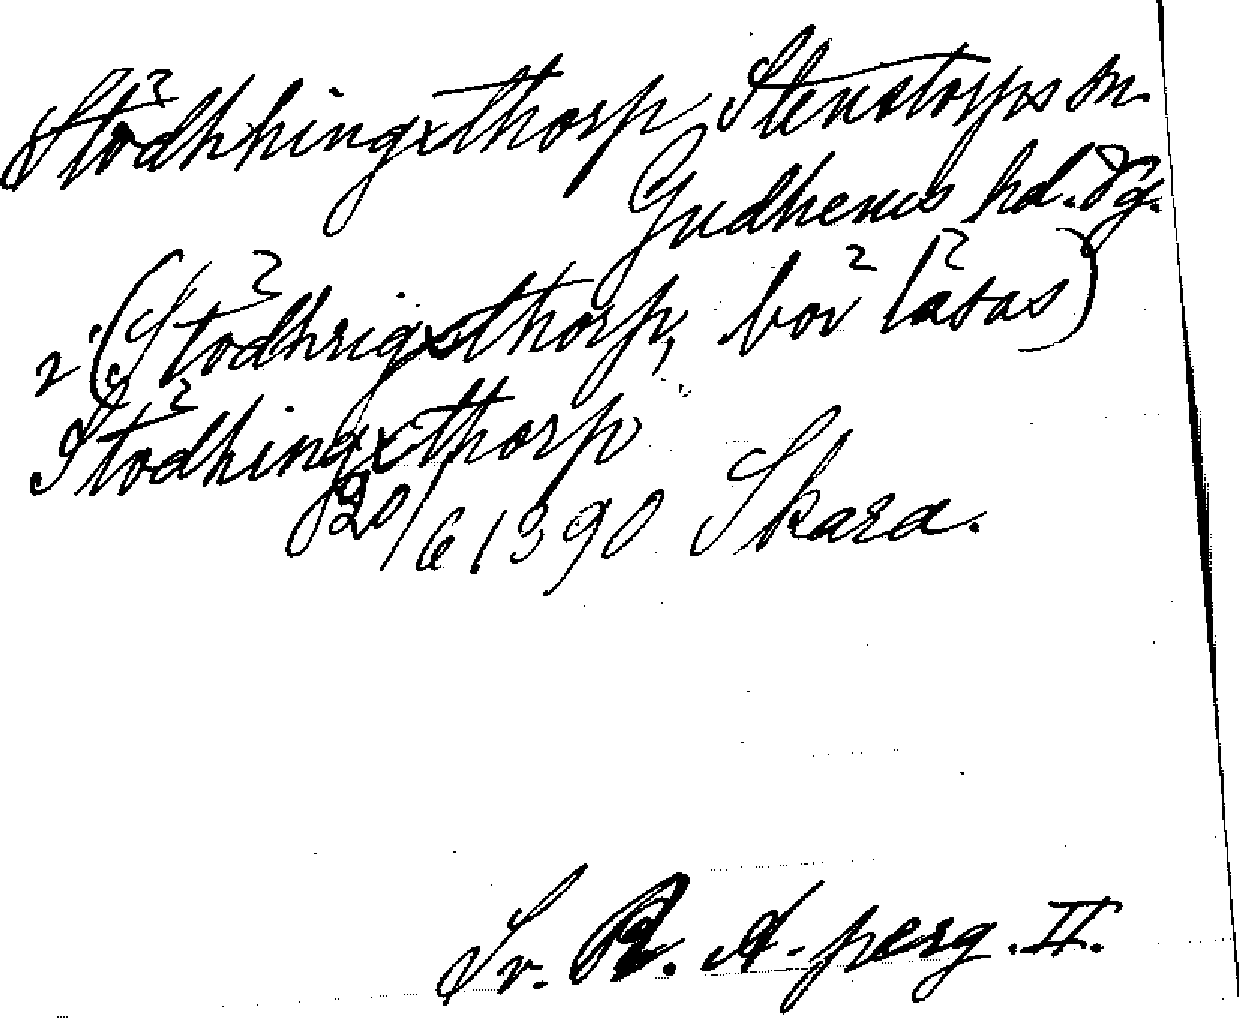 Stödhhingxthorp, Stenstorps sn.
Gudhems hd. Vg.
(Stödhrigxsthorp, bör läsas)
Stödhingxthorp
20/6 1390 Skara.
Sv. R. A. perg. II.